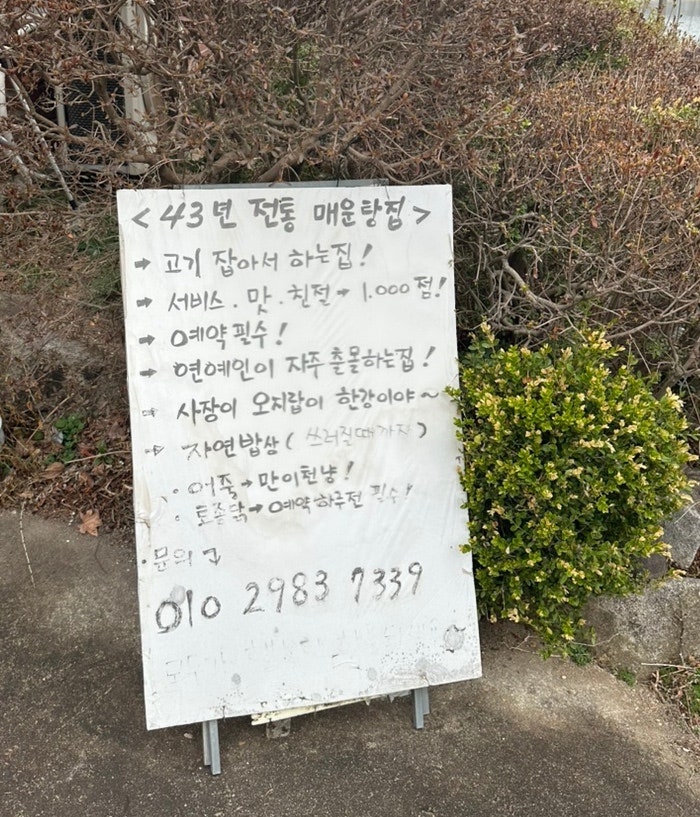 < 43년 전통 매운탕집 >
→ 고기 잡아서 하는집!
→ 서비스. 맛. 친절 → 1.000점!
→ 예약필수!
→ 연예인이 자주 출몰하는집!
→ 사장이 오지랍이 한강이야~
→ 자연밥상 (쓰러질때까지)
· 어죽 → 만이천냥!
· 토종닭 → 예약하루전 필수!
· 문의
010 2983 7339